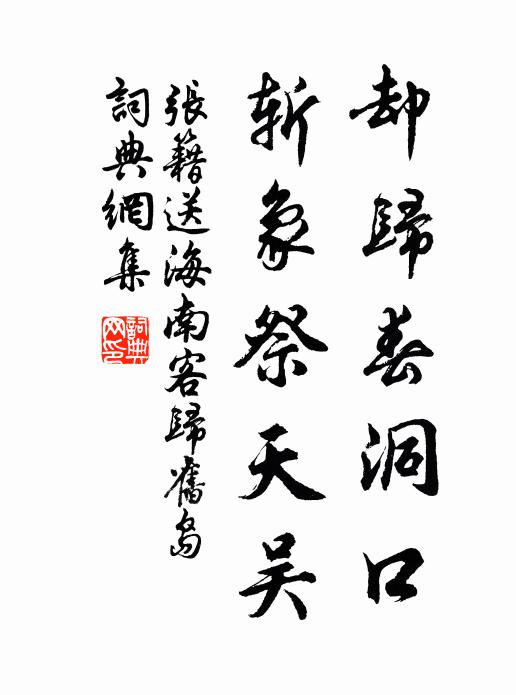 却歸春洞口
斬象祭天吴
張籍送海南客歸舊島
詞典網集
詞典网印